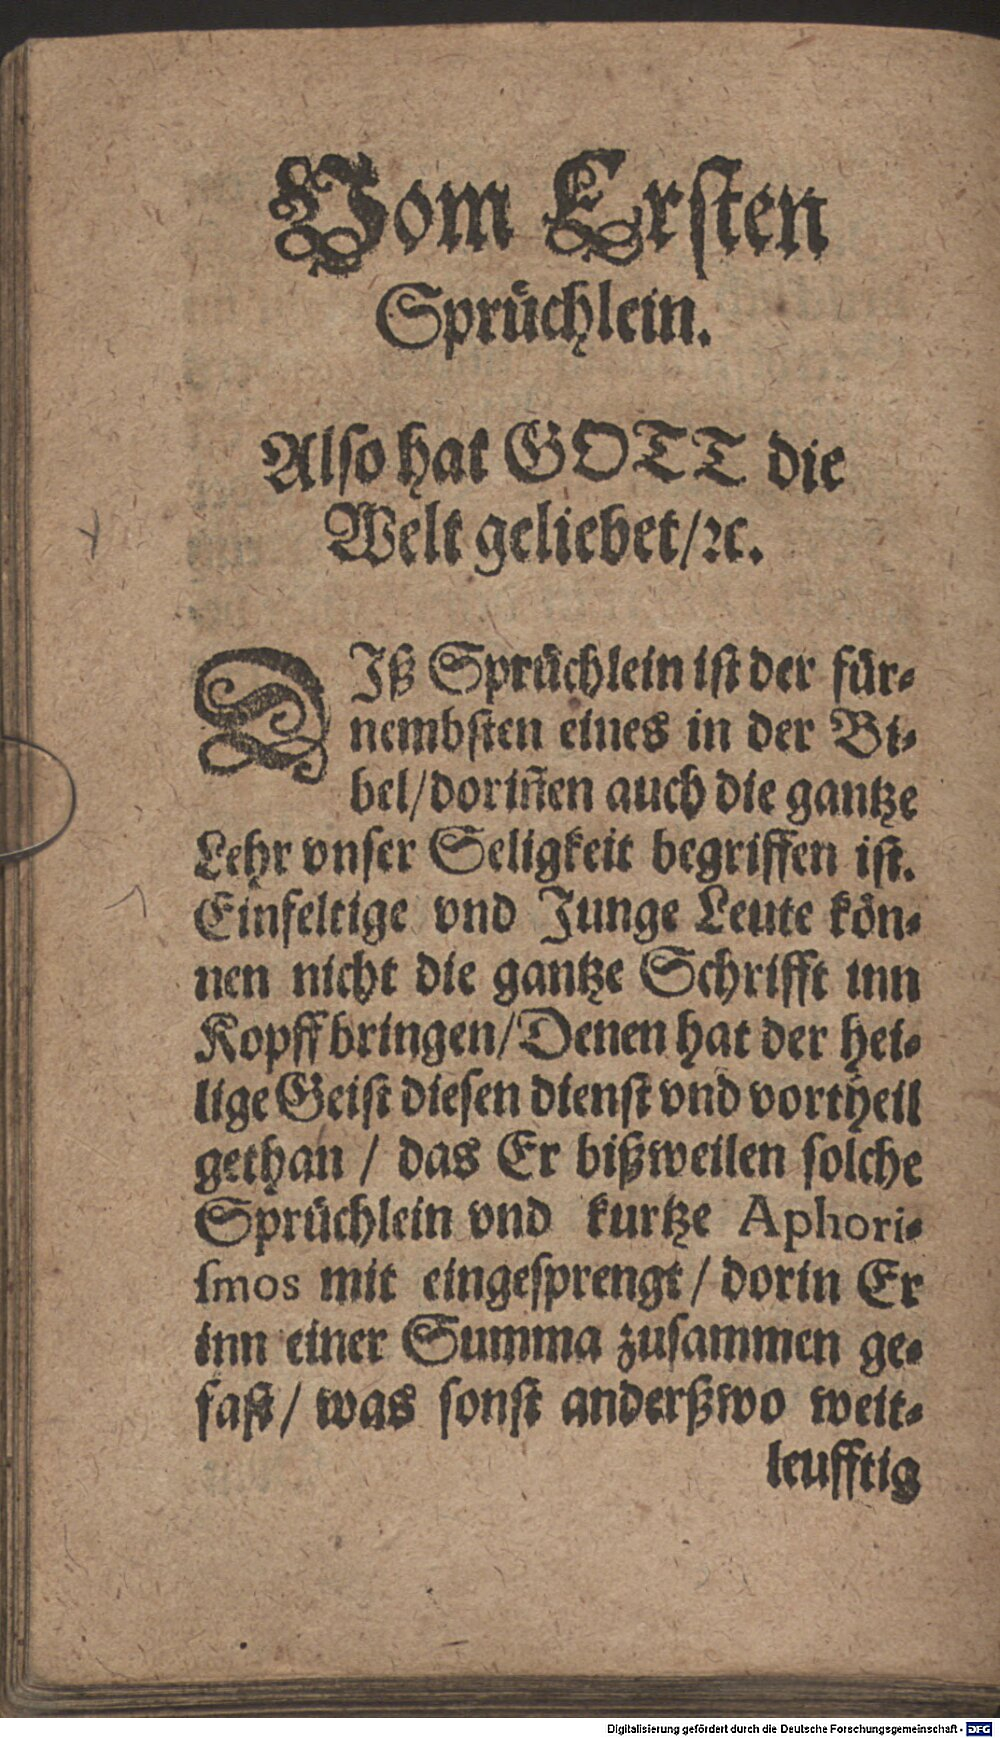 Vom Ersten
Sprüchlein.
Also hat GOTT die
Welt geliebet/ꝛc.
DIß Sprüchlein ist der für⸗
nembsten eines in der Bi⸗
bel/dorin̄en auch die gantze
Lehr vnser Seligkeit begriffen ist.
Einfeltige vnd Junge Leute kön⸗
nen nicht die gantze Schrifft inn
Kopff bringen/Denen hat der hei⸗
lige Geist diesen dienst vnd vortheil
gethan / das Er bißweilen solche
Sprüchlein vnd kurtze Aphori⸗
smos mit eingesprengt / dorin Er
inn einer Summa zusammen ge⸗
fast/ was sonst anderßwo weit⸗
leufftig
Digitalisierung gefördert durch die Deutsche Forschungsgemeinschaft - DFG